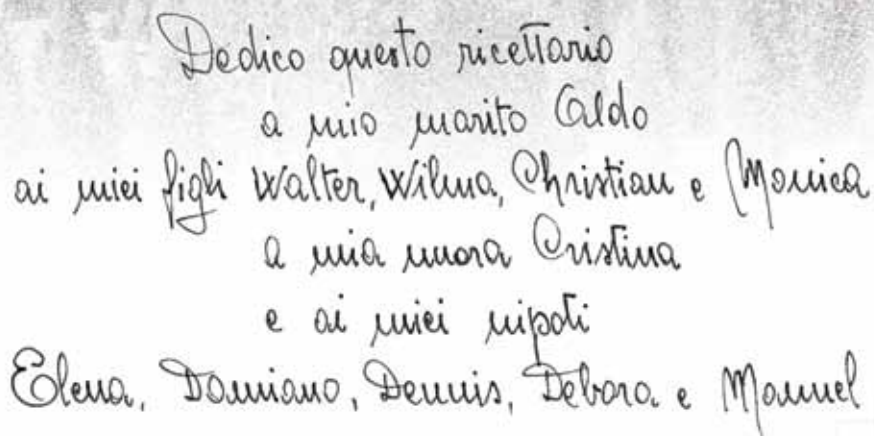 Dedico questo ricettario
a mio marito Aldo
ai miei figli Walter, Wilma, Christian e Monica
a mia nuora Cristina
e ai miei nipoti
Elena, Damiano, Dennis, Debora e Manuel